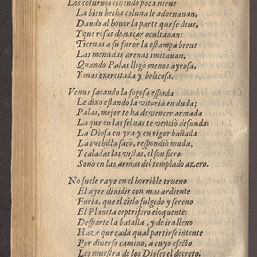 Los coturnos ciñendo poca nieue
La bien hecha coluna le adornauan,
Dando al honor la parte que se deue,
Y que rosas de nacar ocultauan:
Tiernas a su furor la estampa breue
Las menudas arenas imitauan,
Quando Palas llegó menos ayrosa,
Y mas exercitada y belicosa.
Venus sacando la fogosa espada
Le dixo estando la vitoria en duda;
Palas, mejor te ha de vencer armada
La que en las seluas te venció desnuda:
La Diosa en yra y en rigor bañada
La cuchilla saco, respondió muda,
Y caladas las vistas, el son fiero
Sonò en las armas del templado azero.
No suele rayo en el horrible trueno
El ayre diuidir con mas ardiente
Furia, que el cielo fulgido y sereno
El Planeta ceptrifero eloquente:
Desparte la batalla, y de
Haze que cada qual partirse intente
Por diuerso camino, a cuyo
Les muestra de los Dioses el decreto.